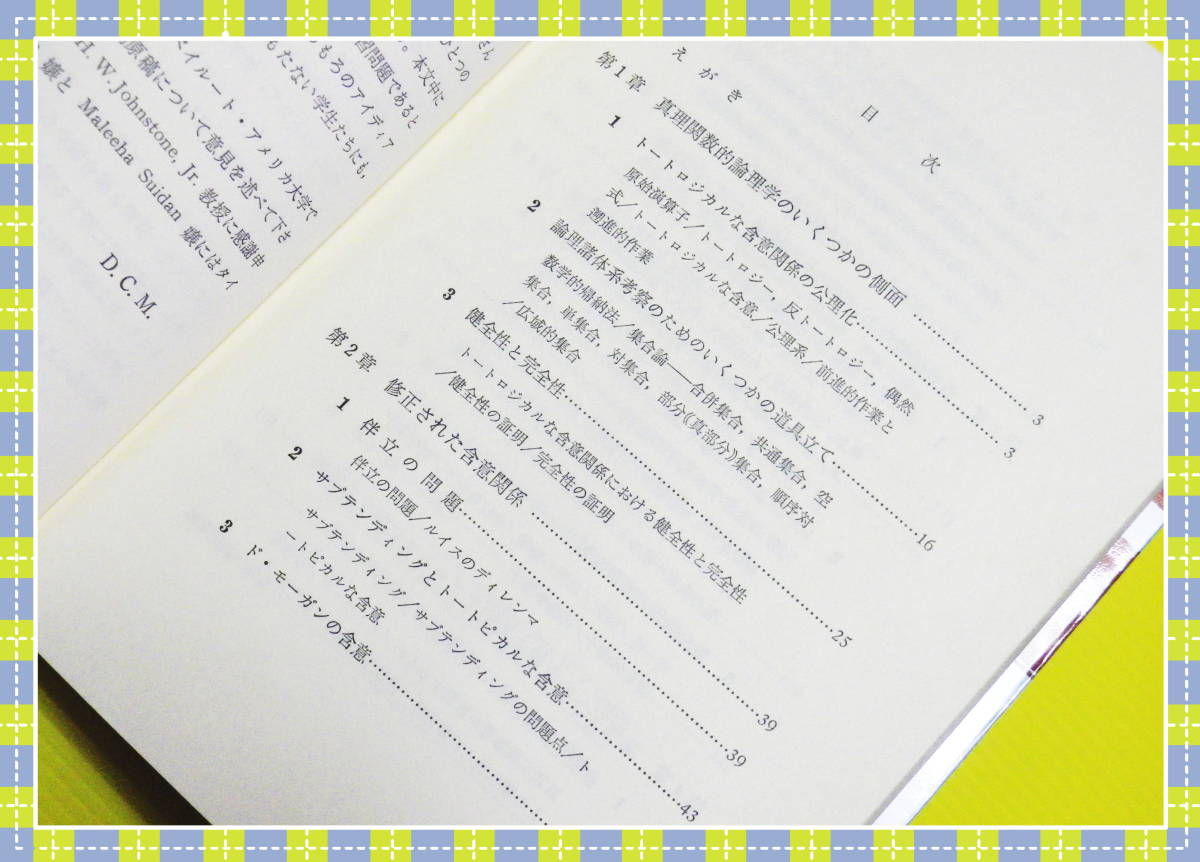 さん
ひとつの
。本文中に
習問題であると
もろのアイディア
もたない学生たちにも,
イルート・アメリカ大学で
原稿について意見を述べて下さ
H. W. Johnstone, Jr. 教授に感謝申
嬢と Maleeha Suidan 嬢にはタイ
D. C. M.
目次
えがき
第1章 真理関数的論理学のいくつかの側面 ……………3
1 トートロジカルな含意関係の公理化……………3
原始演算子/トートロジー, 反トートロジー, 偶然
式/トートロジカルな含意/公理系/前進的作業と
遡進的作業
2 論理諸体系考察のためのいくつかの道具立て……………16
数学的帰納法/集合論――合併集合, 共通集合, 空
集合, 単集合, 対集合, 部分(真部分)集合, 順序対
/広域的集合
3 健全性と完全性……………25
トートロジカルな含意関係における健全性と完全性
/健全性の証明/完全性の証明
第2章 修正された含意関係 ……………39
1 伴立の問題……………39
伴立の問題/ルイスのディレンマ
2 サブテンディングとトートピカルな含意……………43
サブテンディング/サブテンディングの問題点/ト
ートピカルな含意
3 ド・モーガンの含意……………